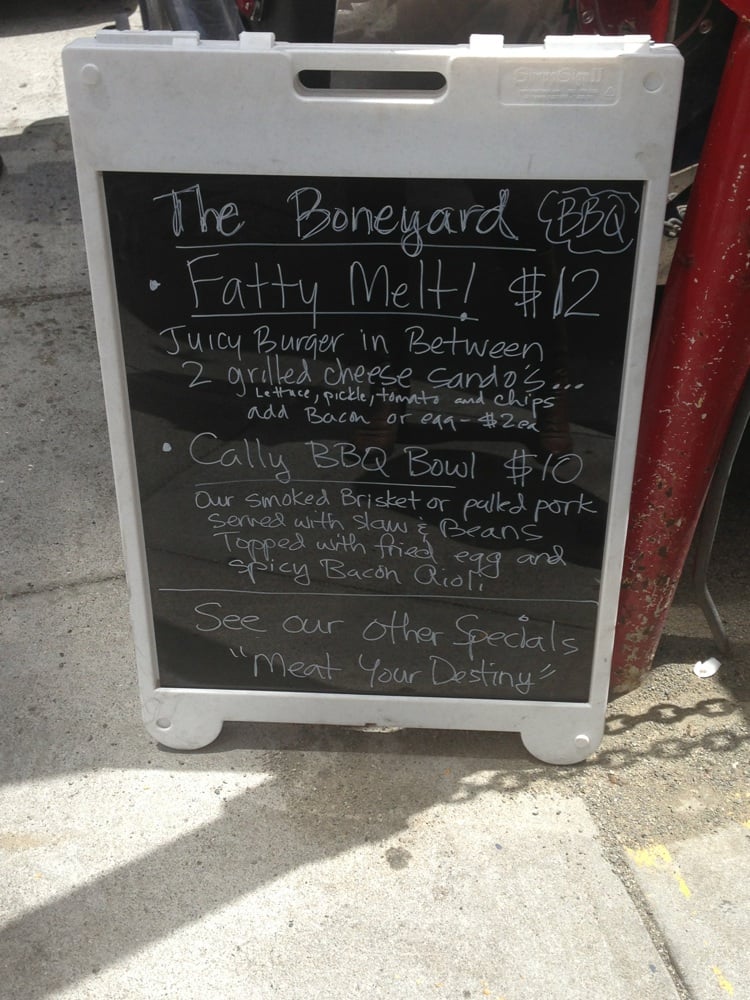 The Boneyard BBQ
• Fatty Melt! $12
Juicy Burger in Between
2 grilled cheese sando's...
Lettuce, pickle, tomato and chips
add Bacon or egg - $2ea
• Cally BBQ Bowl $10
Our smoked Brisket or pulled pork
served with slaw & Beans
Topped with fried egg and
spicy Bacon Aioli
See our other Specials
"Meat Your Destiny"